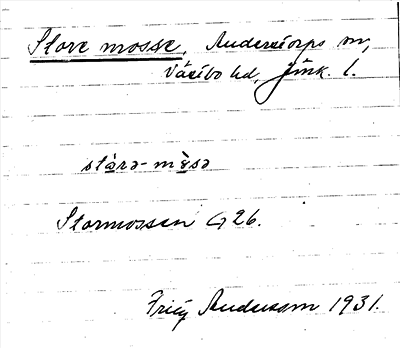 Store mosse, Anderstorps sn,
Västbo hd, Jönk. l.
stòra-mòsa
Stormossen G 26.
Fritz Anderson 1931.